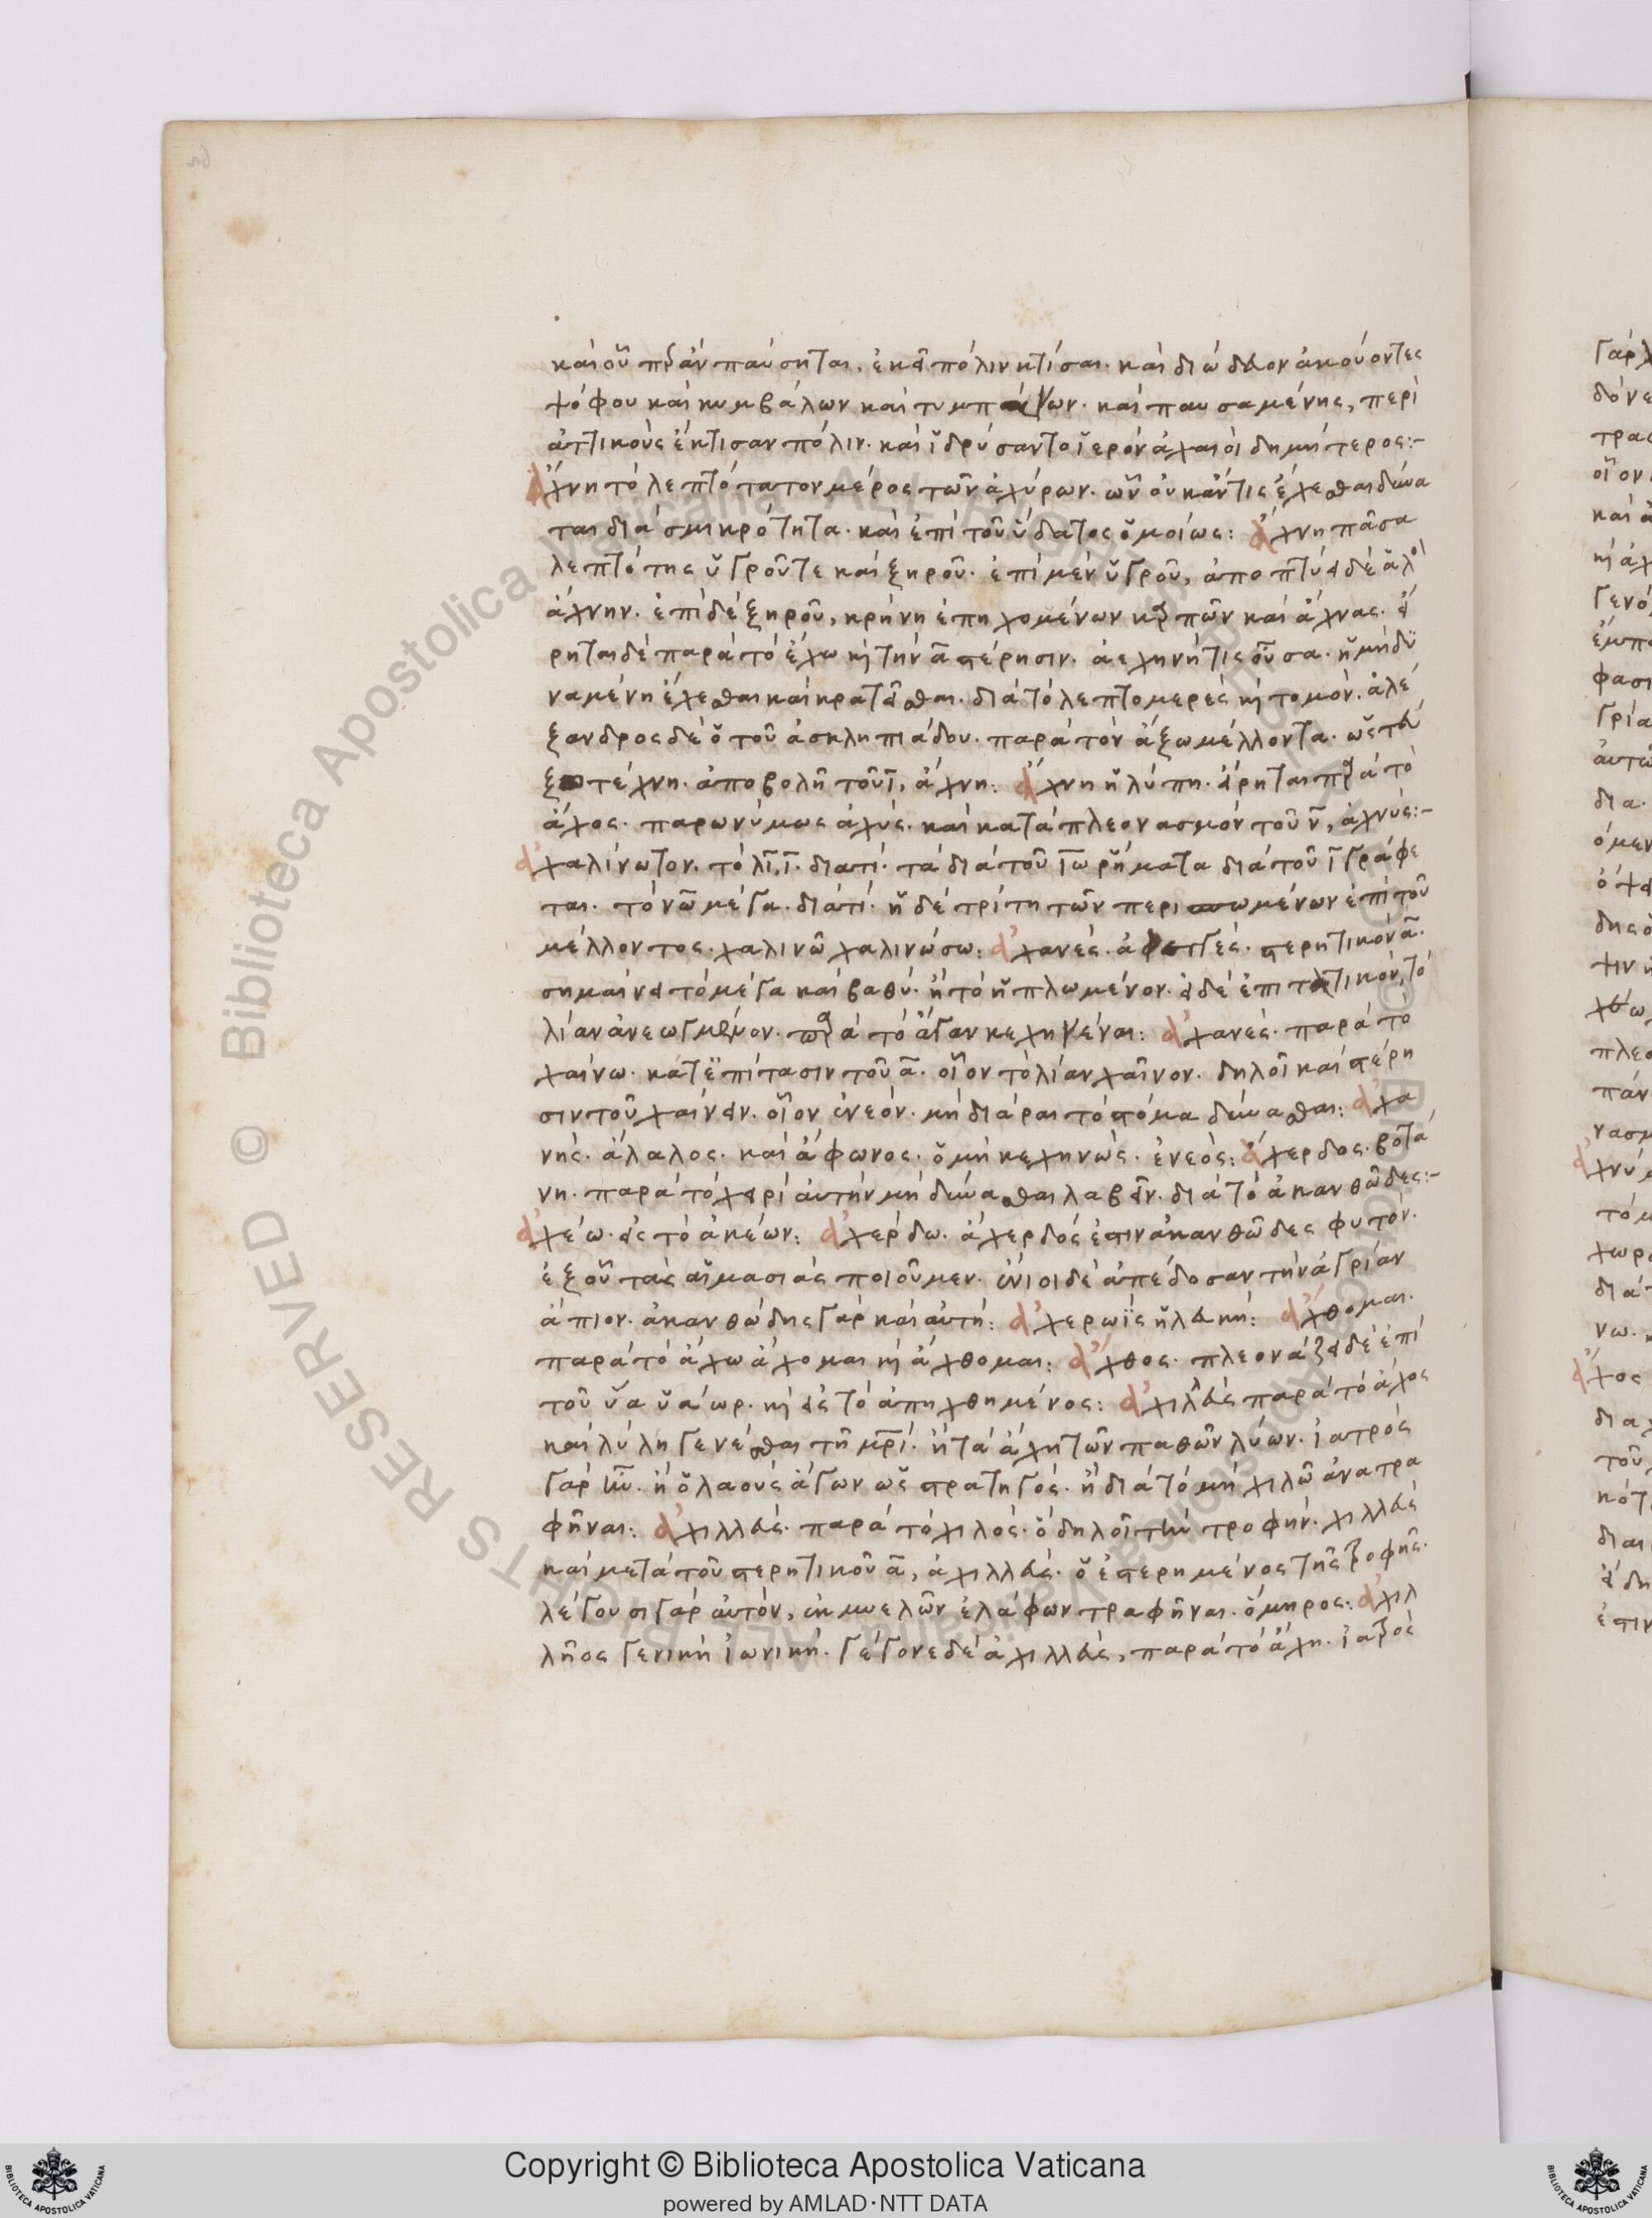 καὶ οὗ π̅ρ̅ ἂν παύσηται, ἐκεῖ πόλιν κτίσαι. καὶ διώδευον ἀκούοντες
ψόφου καὶ κυμβάλων καὶ τυμπάνων. καὶ παυσαμένης, περὶ
ἀττικοὺς ἔκτισαν πόλιν. καὶ ἵδρύσαντο ἱερὸν ἀχαιοὶ δημήτερος:-
Ἄχνη τὸ λεπτότατον μέρος τῶν ἀχύρων. ὧν οὐκ ἄν τις ἔχεσθαι δύνα
ται διὰ σμικρότητα. καὶ ἐπὶ τοῦ ὕδατος ὅμοίως: ἄχνη πᾶσα
λεπτότης ὑγροῦ τε καὶ ξηροῦ. ἐπὶ μὲν ὑγροῦ, ἀποπτύει δὲ ἁλὸς
ἄχνην. ἐπὶ δὲ ξηροῦ, κρήνη ἐπηχομένων καρπῶν καὶ ἄχνας. εἴ
ρηται δὲ παρὰ τὸ ἔχω κὴ τὴν α̅ στέρησιν. ἀεχηνή τις οὖσα. ἣ μὴ δυ
ναμένη ἔχεσθαι καὶ κρατεῖσθαι. διὰ τὸ λεπτομερὲς κὴ τομόν. ἀλέ
ξανδρος δὲ ὁ τοῦ ἀσκληπιάδου. παρὰ τὸν ἄξω μέλλοντα. ὡς τεύ
ξω τέχνη. ἀποβολῇ τοῦ τ̅, ἄχνη: ἄχνη ἡ λύπη. εἴρηται παρὰ τὸ
ἄχος. παρωνύμως ἀχύς. καὶ κατὰ πλεονασμὸν τοῦ ν̅, ἀχνύς:-
ἀχαλίνωτον. τὸ λι̅, ι̅. διατί. τὰ διὰ τοῦ ι̅ω ῥήματα διὰ τοῦ ι̅ γράφε
ται. τὸ νω̅ μέγα. διατί. ἡ δὲ τρίτη τῶν περισπωμένων ἐπὶ τοῦ
μέλλοντος. χαλινῶ χαλινώσω: ἀχανές. ἀφεγγές. στερητικὸν α̅.
σημαίνει τὸ μέγα καὶ βαθύ. ἢ τὸ ἡπλωμένον. εἰ δὲ ἐπιτατικόν, τὸ
λίαν ἀνεωγμένον. παρὰ τὸ ἄγαν κεχηνέναι: ἀχανές. παρὰ τὸ
χαίνω. κατ' ἐπίτασιν τοῦ α̅. οἷον τὸ λίαν χαῖνον. δηλοῖ καὶ στέρη
σιν τοῦ χαίνειν. οἷον ἐνεόν. μὴ διάραι τὸ στόμα δύνασθαι: ἀχα
νής. ἄλαλος. καὶ ἄφωνος. ὁ μὴ κεχηνώς. ἐνεός: ἄχερδος. βοτά
νη. παρὰ τὸ χερὶ αὐτὴν μὴ δύνασθαι λαβεῖν. διὰ τὸ ἀκανθῶδες:-
ἀχέω. εἰς τὸ ἀκέων: ἀχέρδω. ἄχερδός ἐστιν ἀκανθῶδες φυτόν.
ἐξ οὗ τὰς αἱμασιὰς ποιοῦμεν. ἔνιοι δὲ ἀπέδοσαν τὴν ἀγρίαν
ἄπιον. ἀκανθώδης γὰρ καὶ αὐτή: ἀχερωῒς ἡ λευκή: ἄχθομαι.
παρὰ τὸ ἄχω ἄχομαι κὴ ἄχθομαι: ἄχθος. πλεονάζει δὲ ἐπὶ
τοῦ ὕα ὕαωρ. κὴ εἰς τὸ ἀπηχθημένος: ἀχιλλεὺς παρὰ τὸ ἄχος
καὶ λύλη γενέσθαι τῇ μ̅ρ̅ί. ἢ τὰ ἄχη τῶν παθῶν λύων. ἰατρὸς
γὰρ ἦν. ἢ ὁ λαοὺς ἄγων ὡς στρατηγός. ἢ διὰ τὸ μὴ χιλῶ ἀνατρα
φῆναι: ἀχιλλεύς. παρὰ τὸ χιλός. ὃ δηλοῖ τὴν τροφήν. χιλλεὺς
καὶ μετὰ τοῦ στερητικοῦ α̅, ἀχιλλεύς. ὁ ἐστερημένος τῆς τροφῆς.
λέγουσι γὰρ αὐτὸν, ἐκ μυελῶν ἐλάφων τραφῆναι. ὅμηρος: ἀχιλ
λῆος γενικὴ ἰωνική. γέγονε δὲ ἀχιλλεὺς, παρὰ τὸ ἄχη. ἰατρὸς
Copyright © Biblioteca Apostolica Vaticana
powered by AMLAD·NTT DATA